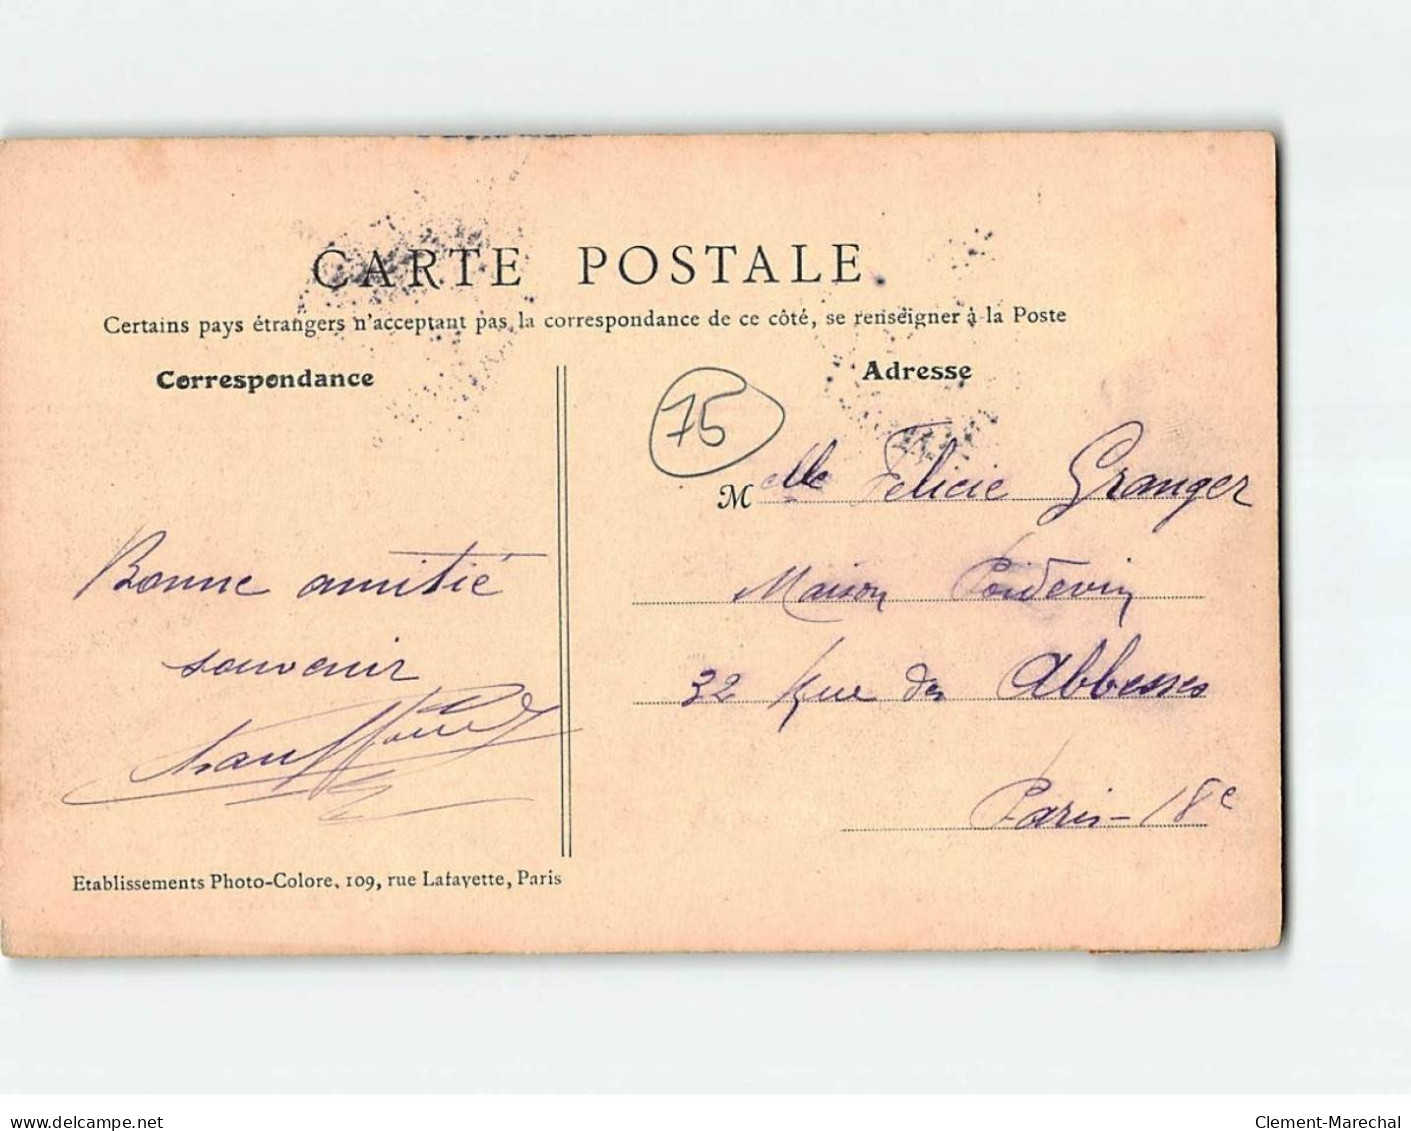 CARTE POSTALE
Certains pays étrangers n'acceptant pas la correspondance de ce côté, se renseigner à la Poste
Correspondance
Adresse
75
Melle Felicie Granger
Maison Poidevin
32 Rue des Abbesses
Paris-18e
Bonne amitié
souvenir
Etablissements Photo-Colore, 109, rue Lafayette, Paris
www.delcampe.net
Clement-Marechal